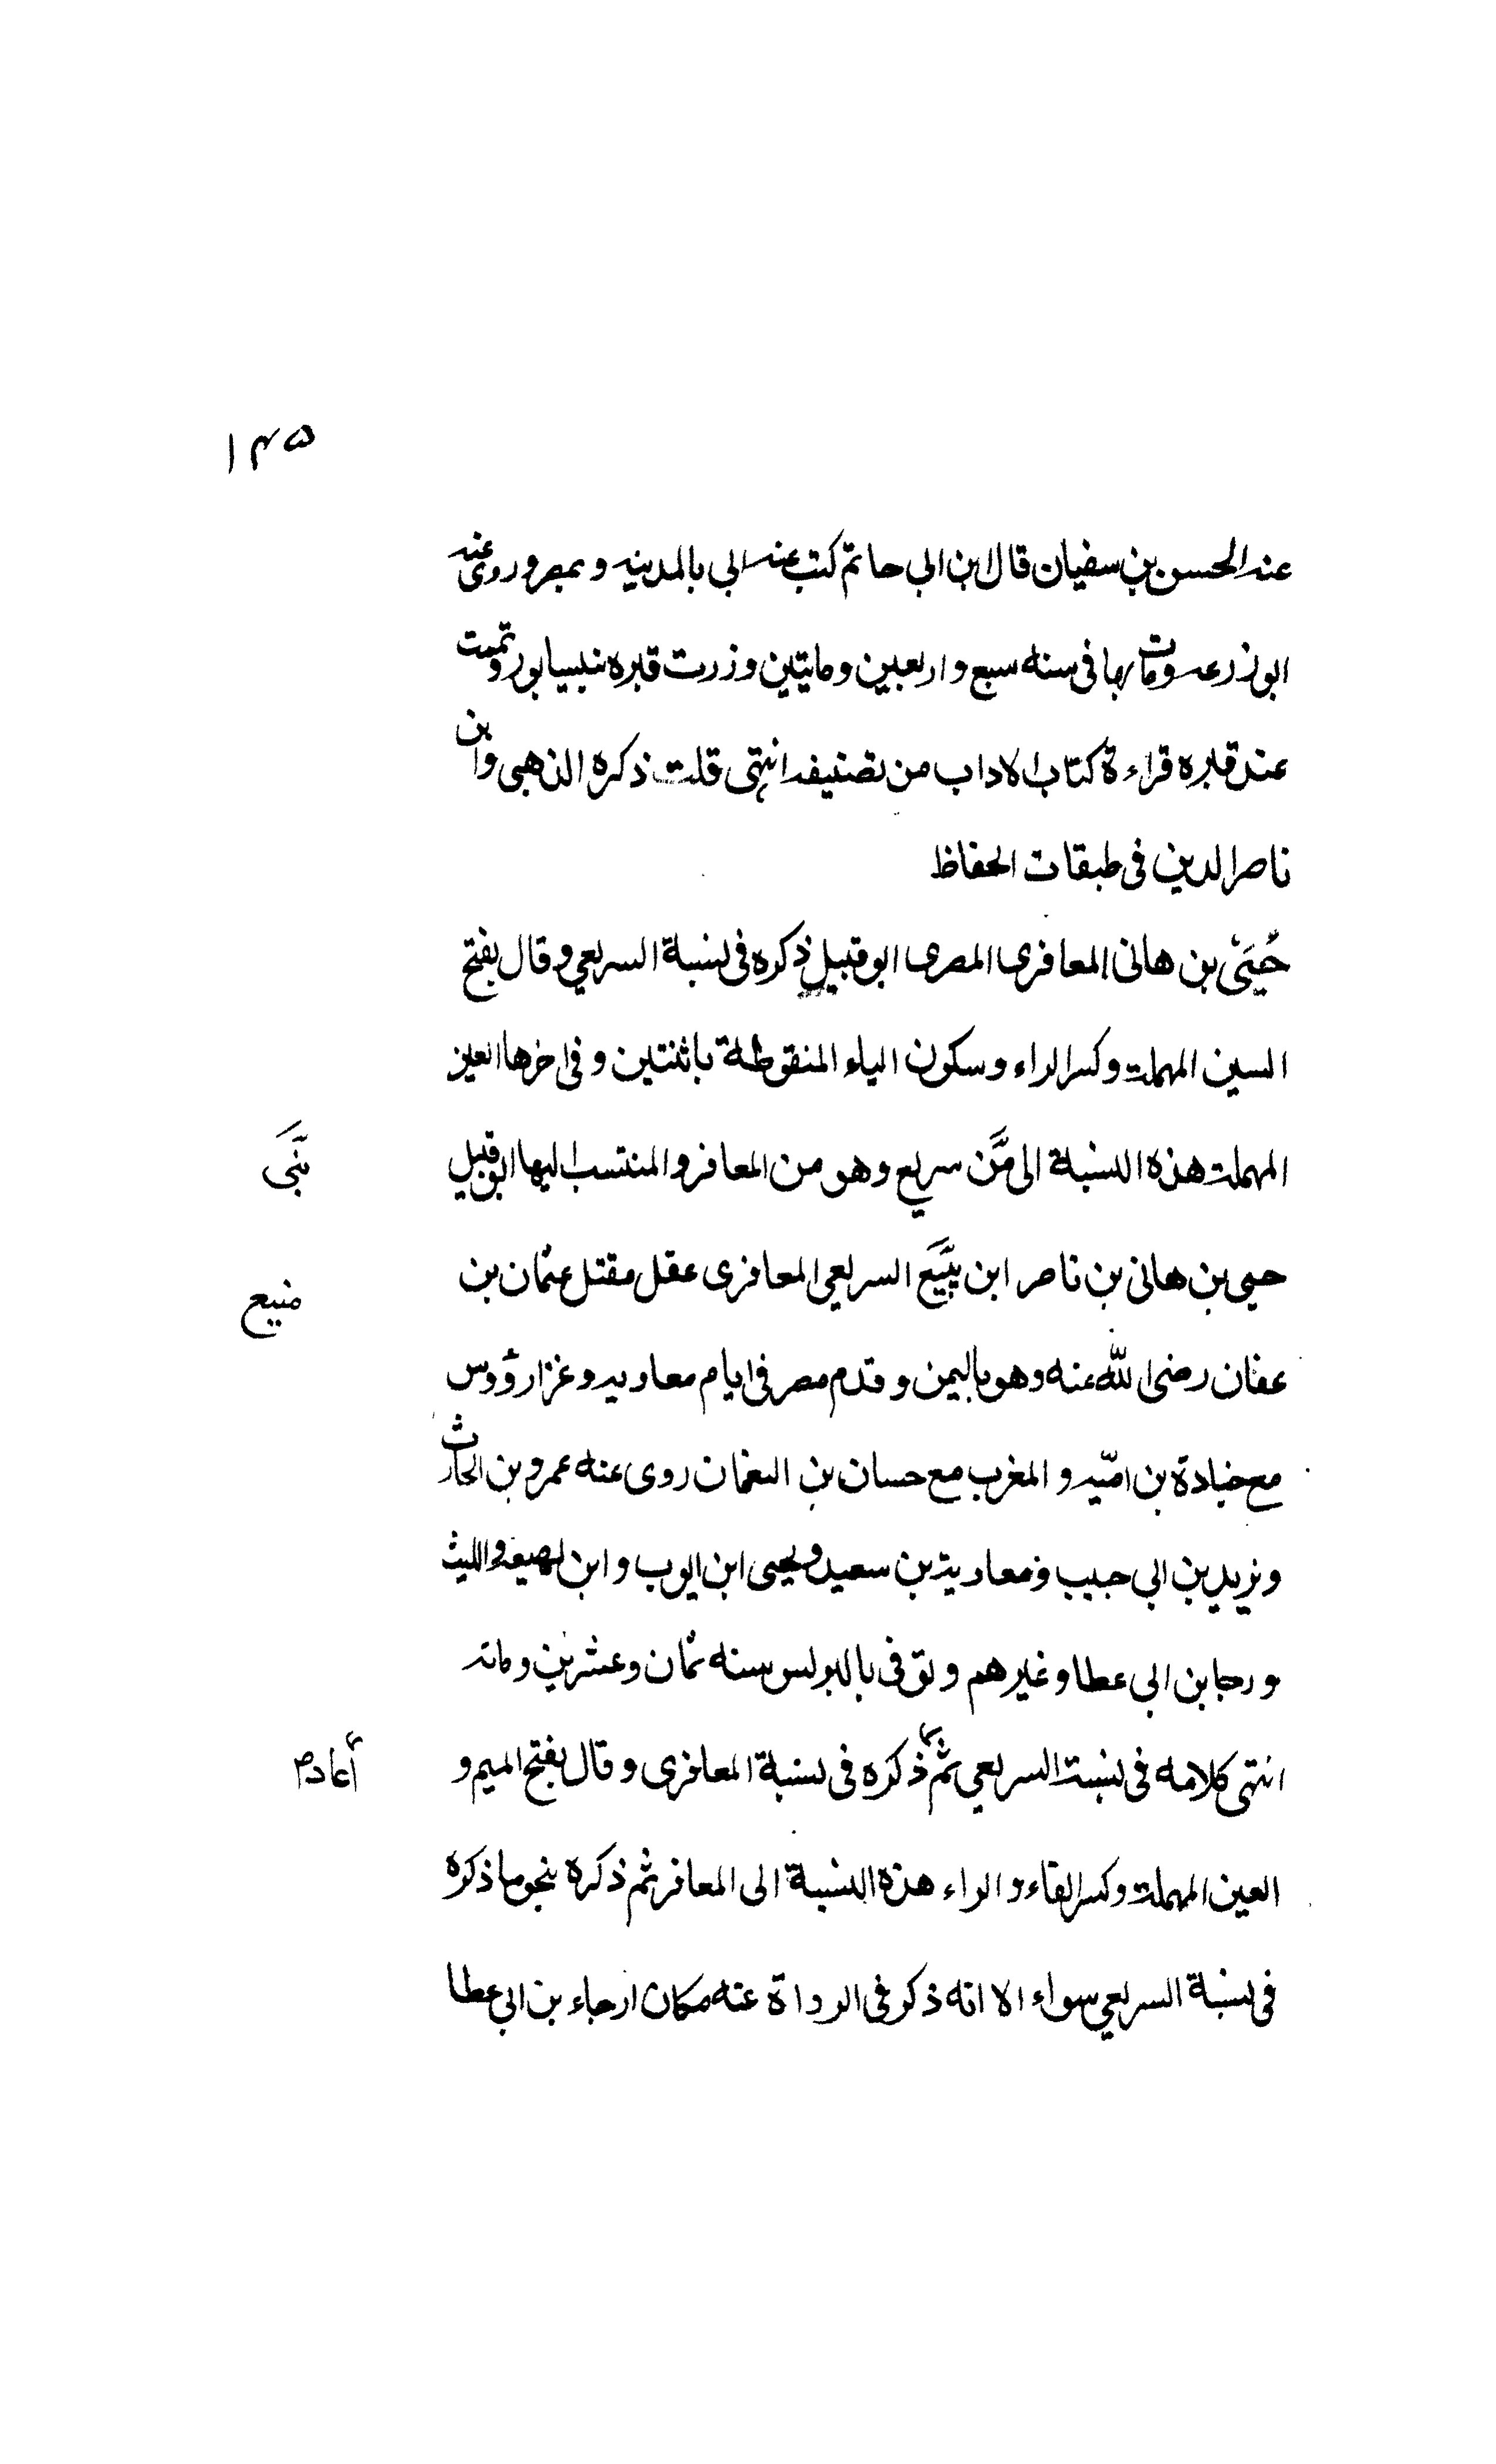 ١٣٥
عنه الحسن بن سفيان قال ابن ابى حاتم كتب عنه ابى بالمدينه وبمصر وروى عنه
ابو زرعه ومات بها فى سنه سبع واربعين ومايتين وزرت قبره بنيسابور وتممت
عند قبره قراءة كتاب الاداب من تصنيفه انتهى قلت ذكره الذهبى وابن
ناصر الدين فى طبقات الحفاظ
حُيَىّ بن هانى المعافرى المصرى ابو قبيل ذكره فى نسبة السريعي وقال بفتح
السين المهملة وكسر الراء وسكون الياء المنقوطة باثنتين وفى اخرها العين
المهملة هذه النسبة الى من سريع وهو من المعافر والمنتسب اليها ابو قبيل
بنى
حيي بن هانى بن ناصر ابن يَنَّع السريعي المعافرى عقل مقتل عثمان بن
منيع
عفان رضى الله عنه وهو باليمن وقدم مصر فى ايام معاويه وغزا رؤدس
مع جنادة بن اميّه والمغرب مع حسان بن النعمان روى عنه عمرو بن الحارث
ويزيد بن ابى حبيب ومعاوية بن سعيد ويحيى ابن ايوب وابن لهيعه والليث
ورجا بن ابى عطا وغيرهم وتوفى بالبرلس سنه ثمان وعشرين ومائه
انتهى كلامه فى نسبة السريعي ثم ذكره فى نسبة المعافرى وقال بفتح الميم و
أعاده
العين المهملة وكسر الفاء والراء هذه النسبة الى المعافر ثم ذكره بنحو ما ذكره
فى نسبة السريعي سواء الا انه ذكر فى الرواة عنه مكان ارجاء بن ابى عطا